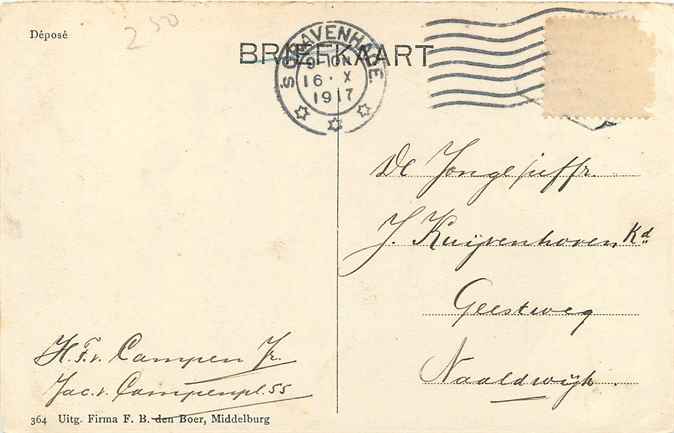 Déposé
250
BRIEFKAART
'S GRAVENHAGE
9-10N
16 X
1917
De Jongejuffr.
J. Kuijvenhoven Kd
Geestweg
Naaldwijk
H. F. v. Campen Jr.
Jac. v. Campenpl. 55
364 Uitg. Firma F. B. den Boer, Middelburg